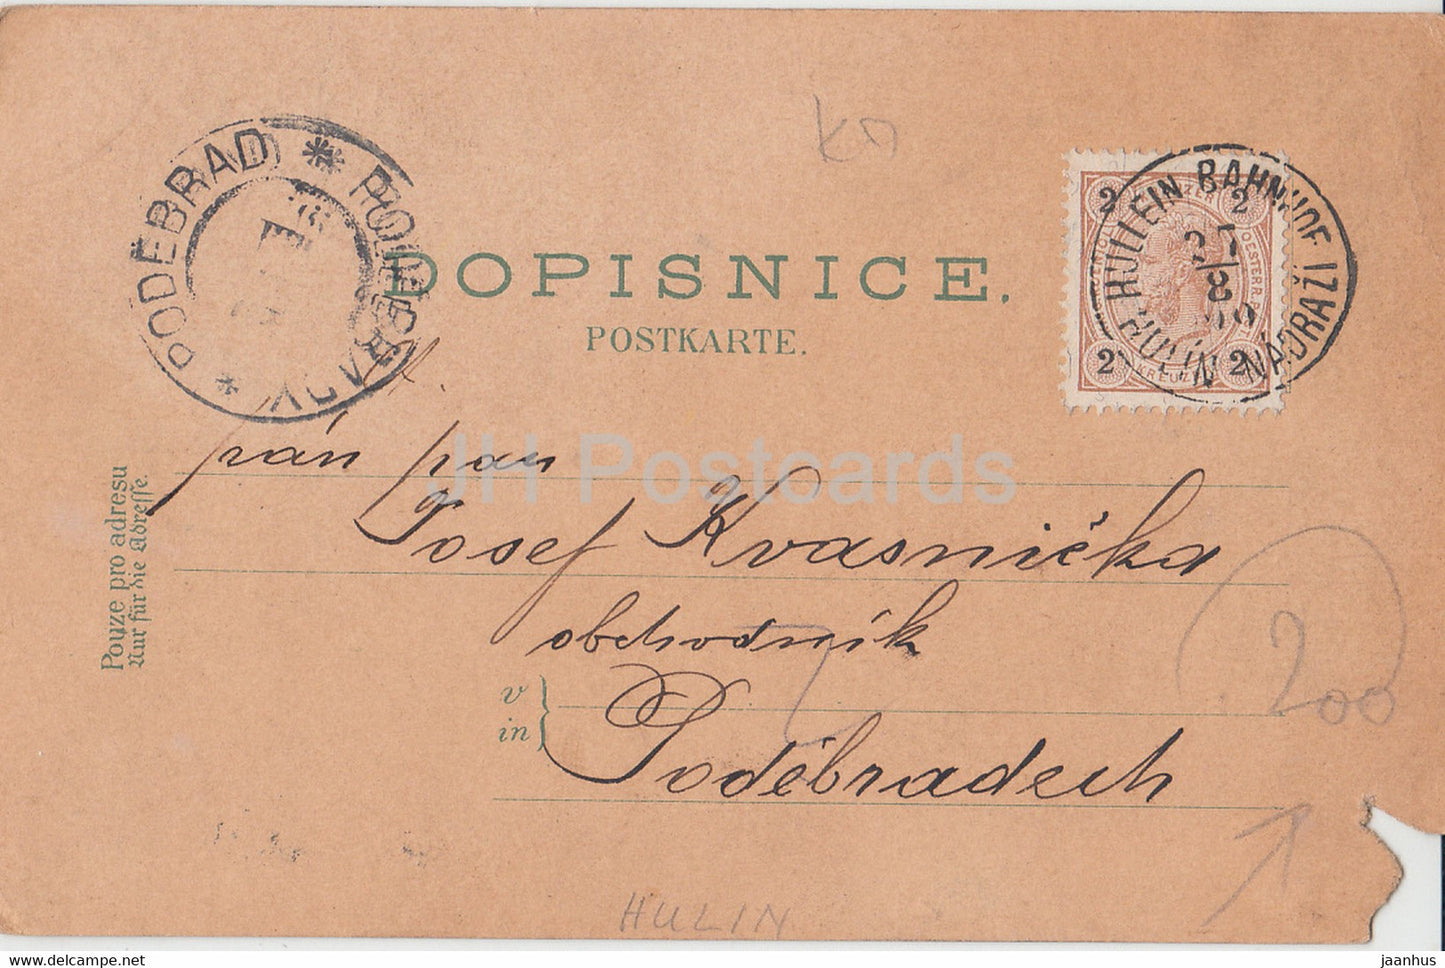 DOPISNICE.
POSTKARTE.
PODĚBRAD * * PODĚBRADY
HULLEIN BAHNHOF
HULÍN NÁDRAŽÍ
8
2 2
2 2
KREUZER
OESTERR.
KD
Pouze pro adresu
Nur für die Adresse.
pán pan
Josef Kvasnička
obchodník
v
in
Poděbradech
200
HULIN
JH Postcards
delcampe.net
jaanhus